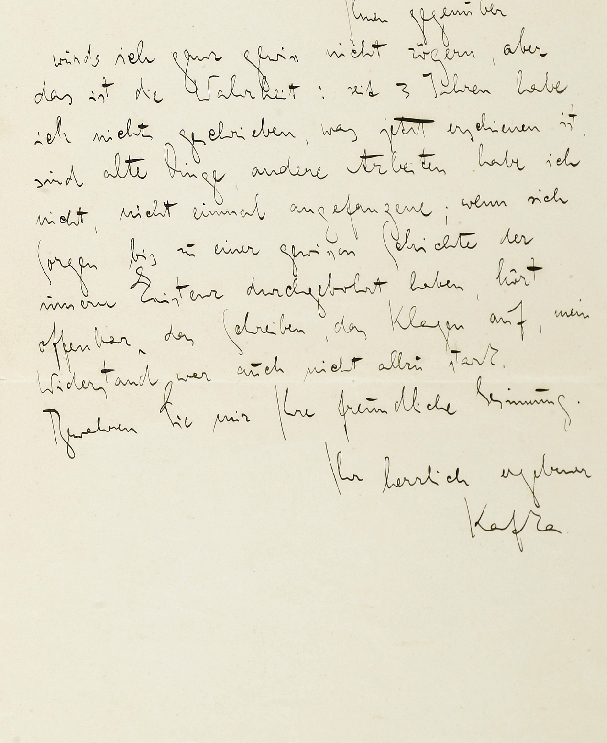 Ihnen gegenüber
würde ich ganz gewiss nicht zögern, aber
das ist die Wahrheit: seit 3 Jahren habe
ich nichts geschrieben, was jetzt erschienen ist
sind alte Dinge, andere Arbeiten habe ich
nicht, nicht einmal angefangene; wenn sich
Sorgen bis zu einer gewissen Schichte der
innern Existenz durchgebohrt haben, hört
offenbar das Schreiben, das Klagen auf, mein
Widerstand war auch nicht allzu stark.
Bewahren Sie mir Ihre freundliche Gesinnung.
Ihr herzlich ergebener
Kafka